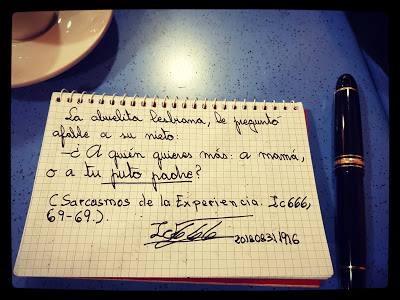 La abuelita lesbiana, le preguntó
afable a su nieto:
-¿A quién quieres más: a mamá,
o a tu puto padre?
(Sarcasmos de la Experiencia. Ic666,
69-69.).
Ic666 20180831/1916